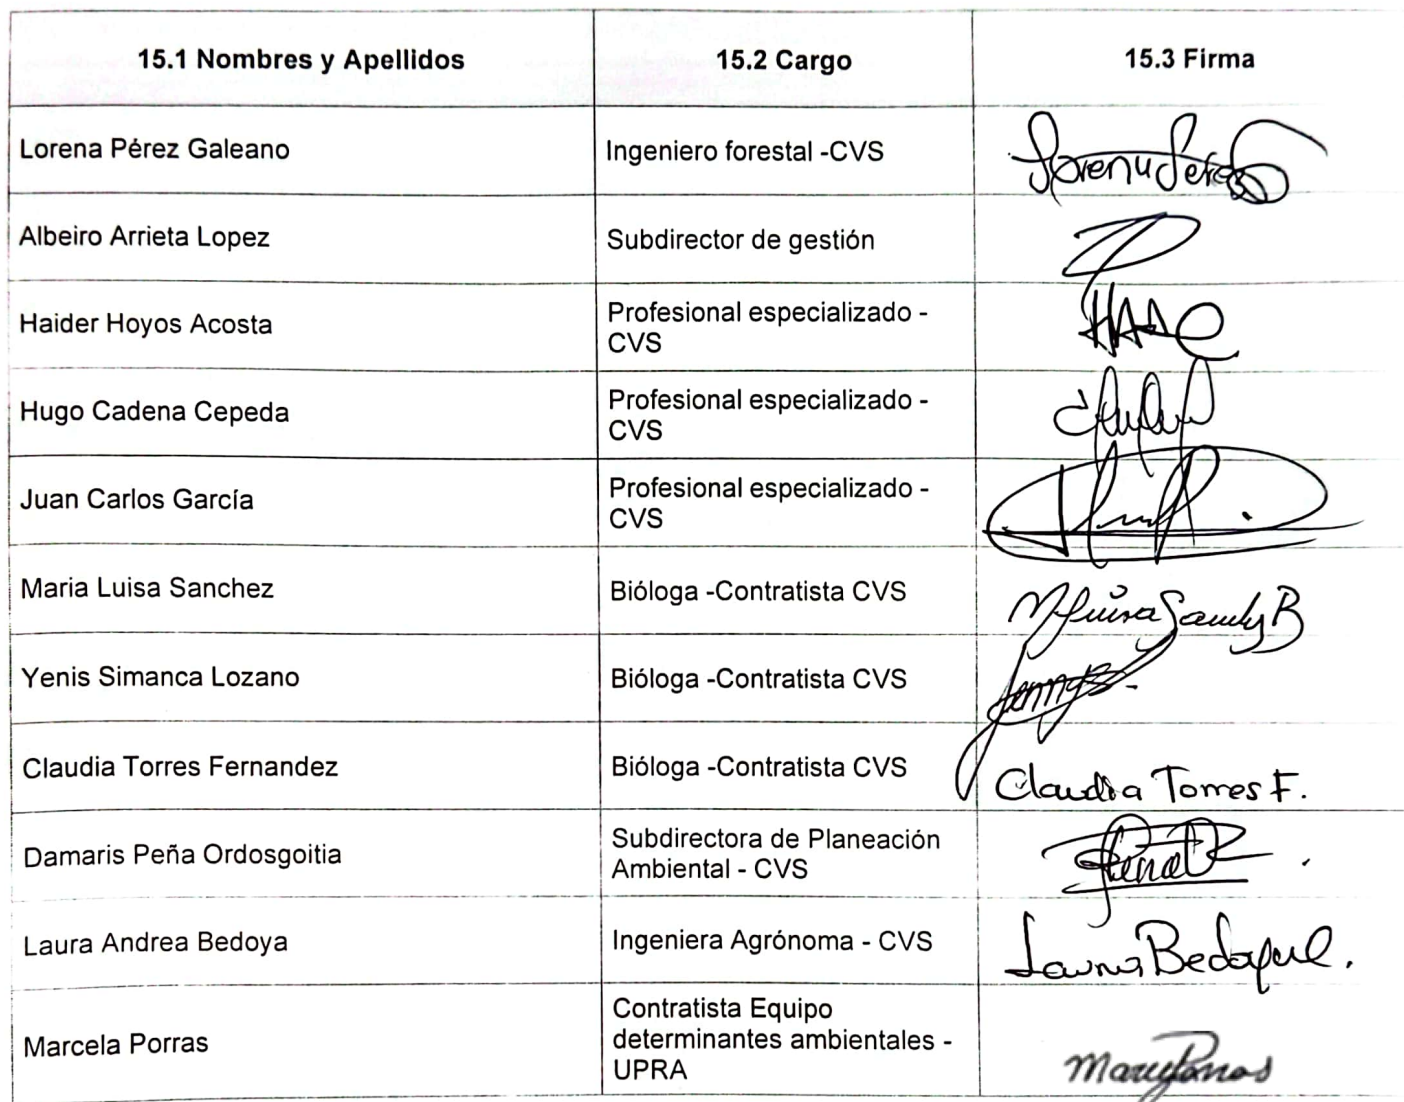 15.1 Nombres y Apellidos 15.2 Cargo 15.3 Firma
Lorena Pérez Galeano Ingeniero forestal -CVS
Albeiro Arrieta Lopez Subdirector de gestión
Haider Hoyos Acosta Profesional especializado -
CVS
Hugo Cadena Cepeda Profesional especializado -
CVS
Juan Carlos García Profesional especializado -
CVS
Maria Luisa Sanchez Bióloga -Contratista CVS
Yenis Simanca Lozano Bióloga -Contratista CVS
Claudia Torres Fernandez Bióloga -Contratista CVS Claudia Torres F.
Damaris Peña Ordosgoitia Subdirectora de Planeación
Ambiental - CVS
Laura Andrea Bedoya Ingeniera Agrónoma - CVS
Marcela Porras Contratista Equipo
determinantes ambientales -
UPRA